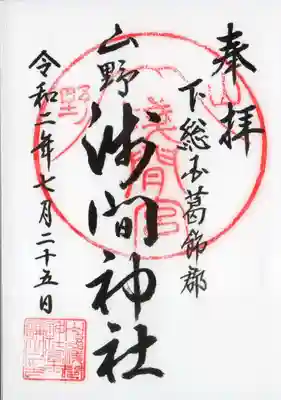 奉拝
下総国葛飾郡
山野
浅間神社
令和二年七月二十五日
山野
浅間宮